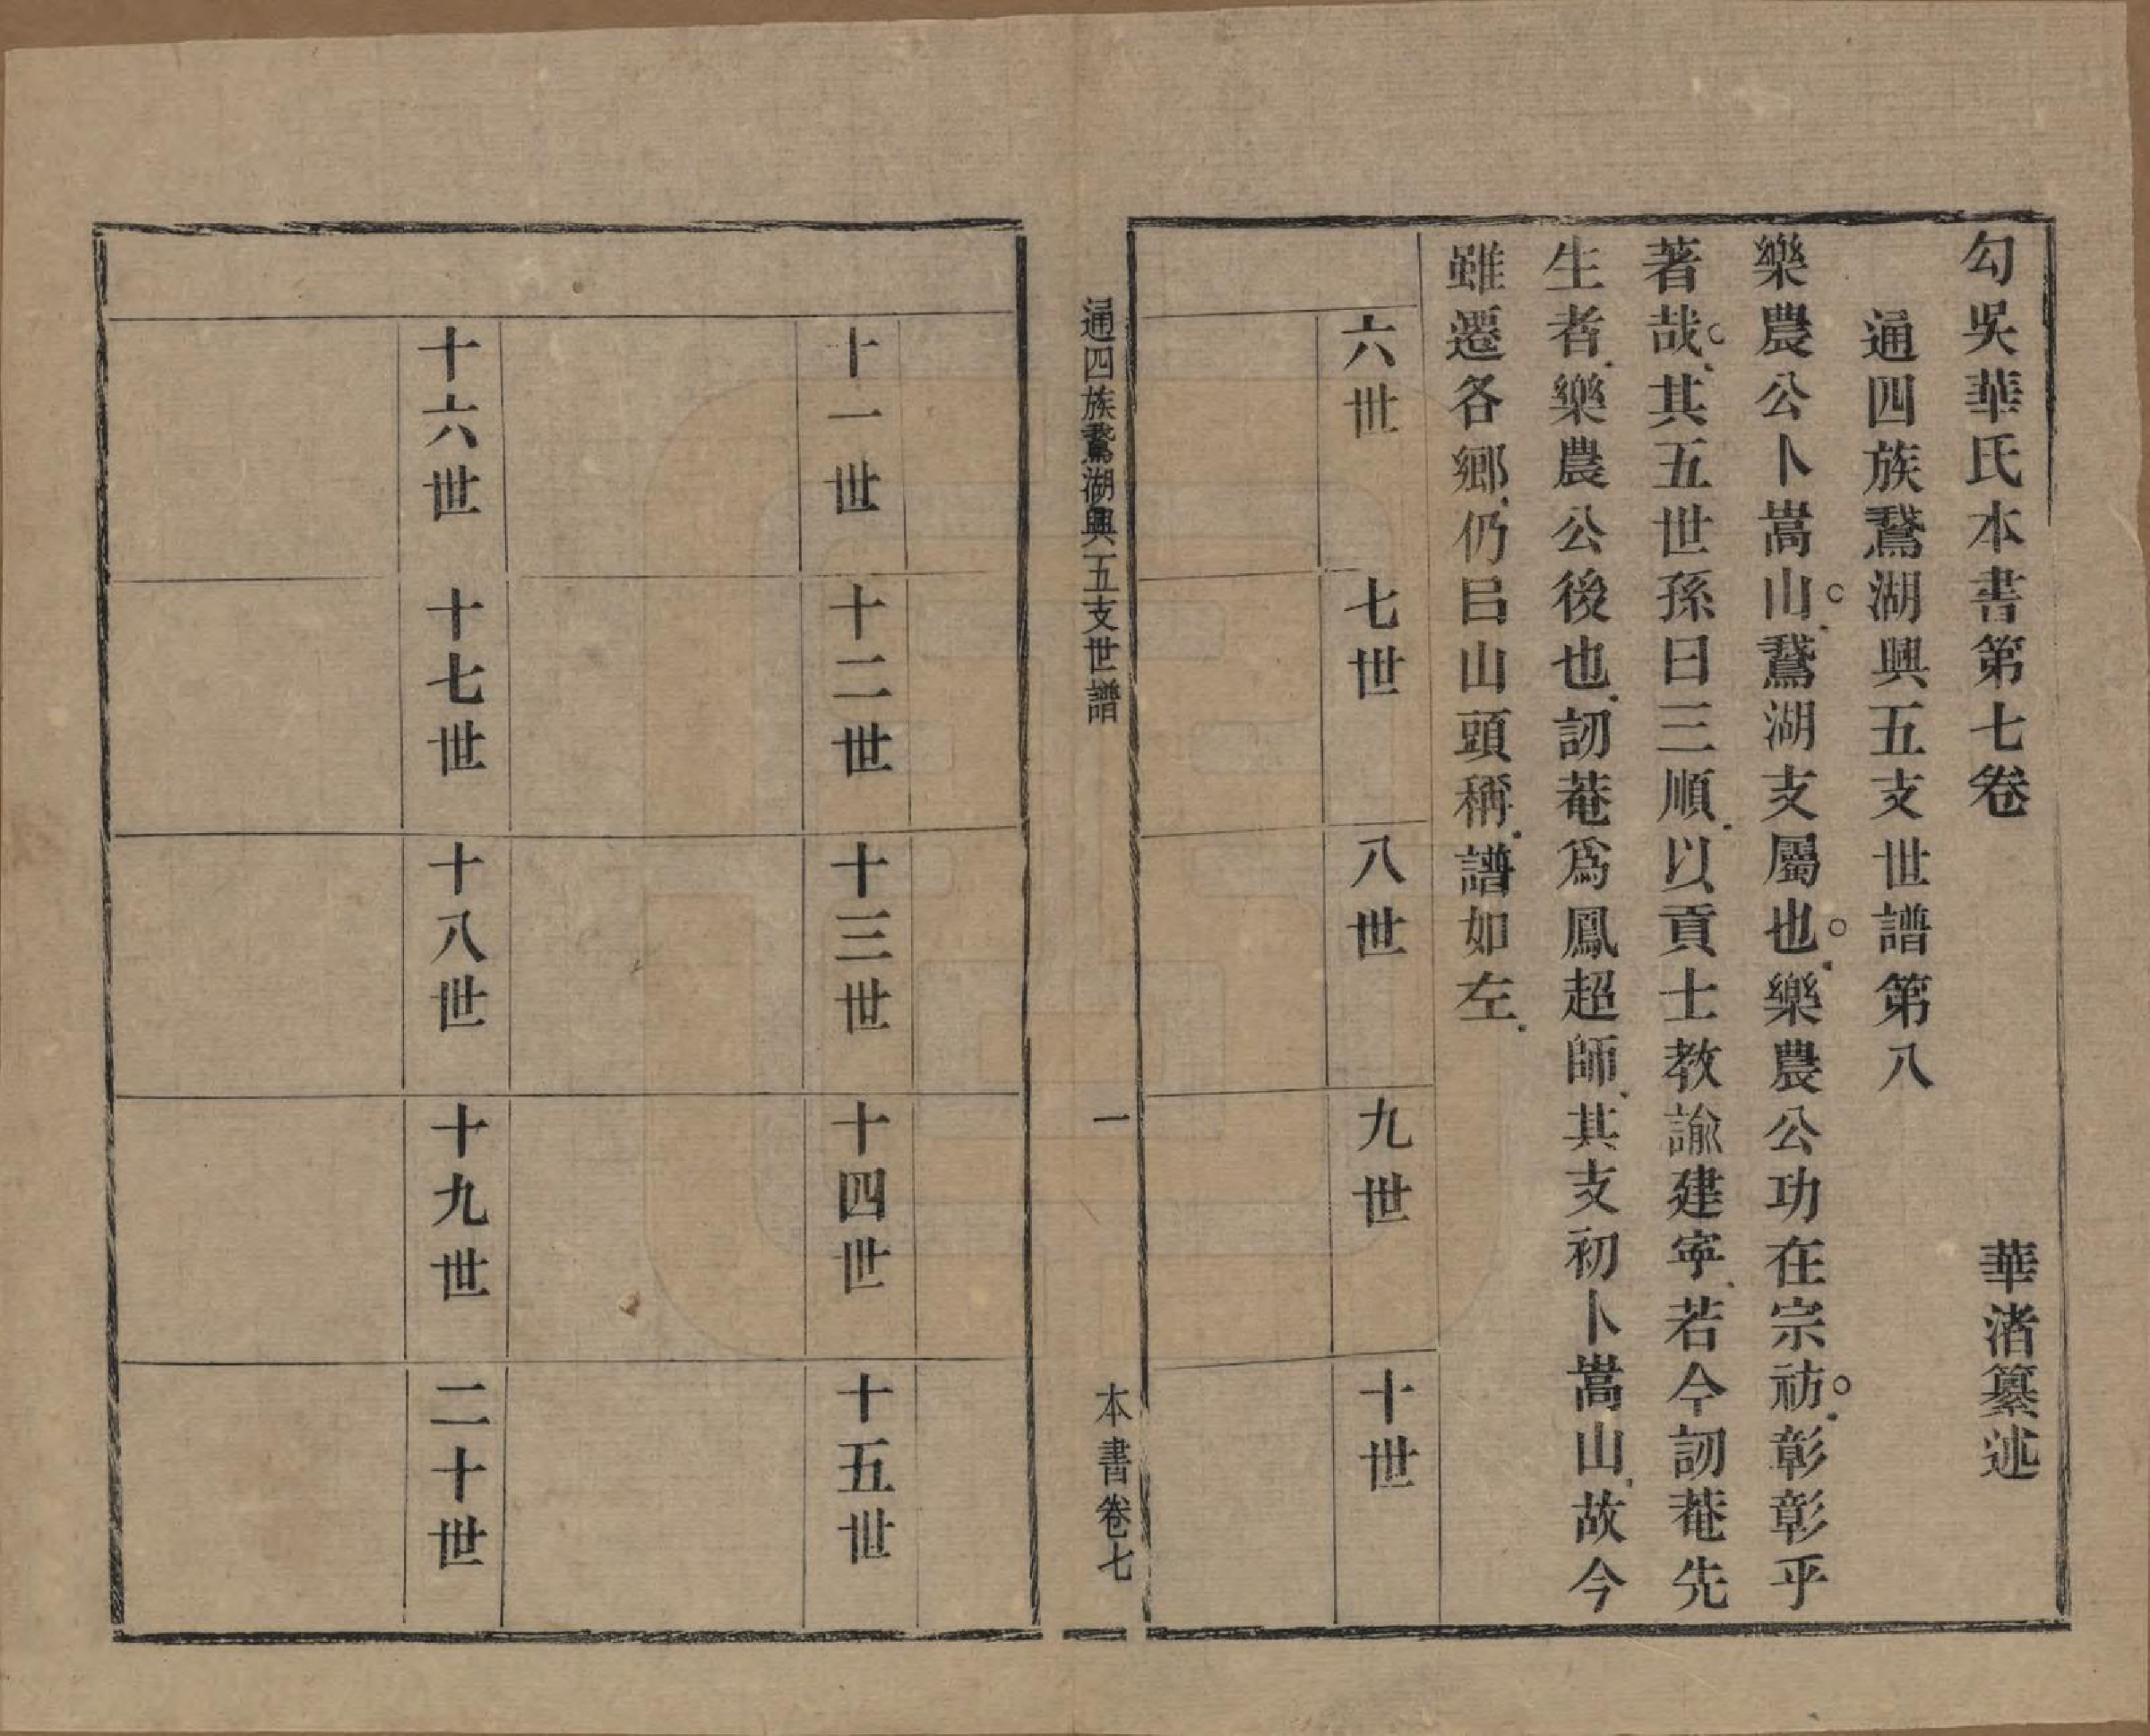 勾吳華氏本書第七卷
華渚纂述
通四族鵞湖興五支世譜第八
樂農公卜嵩山。鵞湖支屬也。樂農公功在宗祊。彰彰乎
著哉。其五世孫曰三順。以貢士教諭建寧。若今訒菴先
生者。樂農公後也。訒菴爲鳳超師。其支初卜嵩山。故今
雖遷各鄉。仍㠯山頭稱。譜如左。
六世
七世
八世
九世
十世
通四族鵞湖興五支世譜
一
本書卷七
十一世
十二世
十三世
十四世
十五世
十六世
十七世
十八世
十九世
二十世